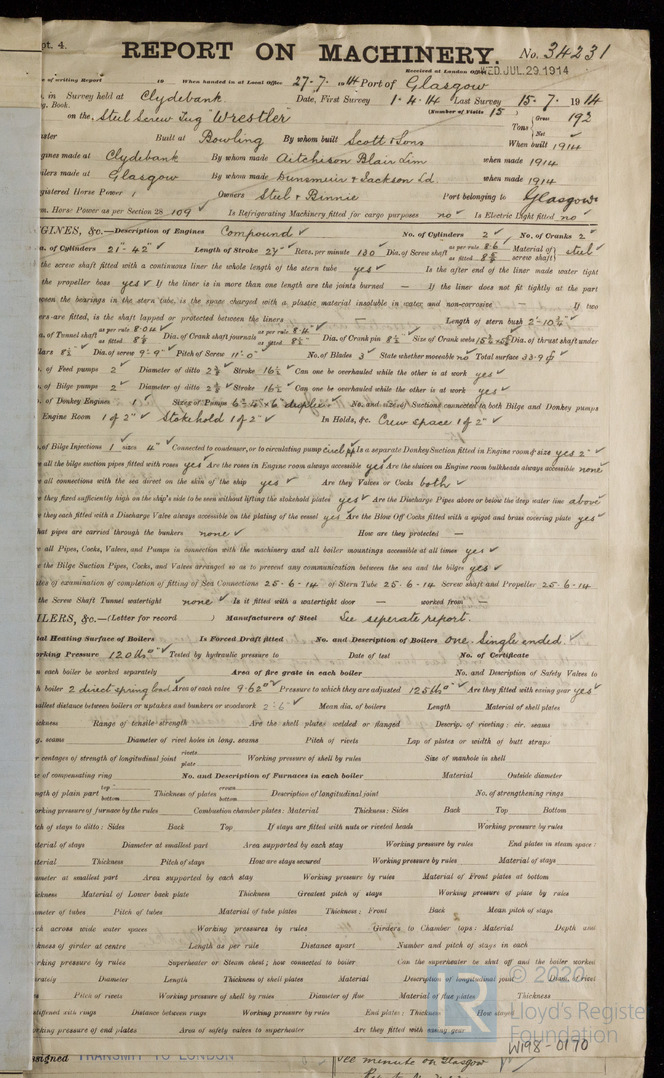 pt. 4. REPORT ON MACHINERY. No. 34231
Received at London Office WED. JUL. 29. 1914
e of writing Report 19 When handed in at Local Office 27.7.1914 Port of Glasgow
. in Survey held at Clydebank Date, First Survey 1.4.14 Last Survey 15.7.1914
g. Book. (Number of Visits 15)
on the Steel Screw Tug "Wrestler" Tons Gross 192 Net
aster Built at Bowling By whom built Scott & Sons When built 1914
gines made at Clydebank By whom made Aitchison Blair Lim when made 1914
ilers made at Glasgow By whom made Dunsmuir & Jackson Ld. when made 1914
gistered Horse Power Owners Steel & Binnie Port belonging to Glasgow
m. Horse Power as per Section 28 109 Is Refrigerating Machinery fitted for cargo purposes no Is Electric Light fitted no
NGINES, &c.—Description of Engines Compound No. of Cylinders 2 No. of Cranks 2
a. of Cylinders 21"- 42" Length of Stroke 27" Revs. per minute 130 Dia. of Screw shaft as per rule 8.6 as fitted 8 5/8 Material of screw shaft steel
the screw shaft fitted with a continuous liner the whole length of the stern tube yes Is the after end of the liner made water tight
the propeller boss yes If the liner is in more than one length are the joints burned — If the liner does not fit tightly at the part
ween the bearings in the stern tube, is the space charged with a plastic material insoluble in water and non-corrosive — If two
ers are fitted, is the shaft lapped or protected between the liners — Length of stern bush 2'-10 1/2"
a. of Tunnel shaft as per rule 8.04 as fitted 8 1/8 Dia. of Crank shaft journals as per rule 8.4 as fitted 8 1/2 Dia. of Crank pin 8 1/2 Size of Crank webs Dia. of thrust shaft under
llars 8 1/2 Dia. of screw 9'-9" Pitch of Screw 11'-0" No. of Blades 3 State whether moveable no Total surface 33.9
. of Feed pumps 2 Diameter of ditto 2 3/4 Stroke 16 1/2 Can one be overhauled while the other is at work yes
. of Bilge pumps 2 Diameter of ditto 2 3/4 Stroke 16 1/2 Can one be overhauled while the other is at work yes
. of Donkey Engines 1 Sizes of Pumps duplex No. and size of Suctions connected to both Bilge and Donkey pumps
Engine Room 1 of 2" Stokehold 1 of 2" In Holds, &c. Crew space 1 of 2"
. of Bilge Injections 1 sizes 4" Connected to condenser, or to circulating pump Is a separate Donkey Suction fitted in Engine room & size yes 2"
e all the bilge suction pipes fitted with roses yes Are the roses in Engine room always accessible yes Are the sluices on Engine room bulkheads always accessible none
e all connections with the sea direct on the skin of the ship yes Are they Valves or Cocks both
e they fixed sufficiently high on the ship's side to be seen without lifting the stokehold plates yes Are the Discharge Pipes above or below the deep water line above
e they each fitted with a Discharge Valve always accessible on the plating of the vessel yes Are the Blow Off Cocks fitted with a spigot and brass covering plate yes
hat pipes are carried through the bunkers none How are they protected —
e all Pipes, Cocks, Valves, and Pumps in connection with the machinery and all boiler mountings accessible at all times yes
e the Bilge Suction Pipes, Cocks, and Valves arranged so as to prevent any communication between the sea and the bilges yes
ates of examination of completion of fitting of Sea Connections 25-6-14 of Stern Tube 25-6-14 Screw shaft and Propeller 25-6-14
the Screw Shaft Tunnel watertight none Is it fitted with a watertight door — worked from —
ILERS, &c.—(Letter for record ) Manufacturers of Steel See seperate report.
tal Heating Surface of Boilers Is Forced Draft fitted No. and Description of Boilers One. Single ended.
orking Pressure 120 lbs Tested by hydraulic pressure to Date of test No. of Certificate
n each boiler be worked separately Area of fire grate in each boiler No. and Description of Safety Valves to
h boiler 2 direct spring load Area of each valve 9.62 Pressure to which they are adjusted 125 lbs Are they fitted with easing gear yes
mallest distance between boilers or uptakes and bunkers or woodwork 2'-6" Mean dia. of boilers Length Material of shell plates
ickness Range of tensile strength Are the shell plates welded or flanged Descrip. of riveting: cir. seams
g. seams Diameter of rivet holes in long. seams Pitch of rivets Lap of plates or width of butt straps
r centages of strength of longitudinal joint rivets plate Working pressure of shell by rules Size of manhole in shell
e of compensating ring No. and Description of Furnaces in each boiler Material Outside diameter
ngth of plain part top bottom Thickness of plates crown bottom Description of longitudinal joint No. of strengthening rings
orking pressure of furnace by the rules Combustion chamber plates: Material Thickness: Sides Back Top Bottom
tch of stays to ditto: Sides Back Top If stays are fitted with nuts or riveted heads Working pressure by rules
aterial of stays Diameter at smallest part Area supported by each stay Working pressure by rules End plates in steam space:
aterial Thickness Pitch of stays How are stays secured Working pressure by rules Material of stays
ameter at smallest part Area supported by each stay Working pressure by rules Material of Front plates at bottom
ickness Material of Lower back plate Thickness Greatest pitch of stays Working pressure of plate by rules
ameter of tubes Pitch of tubes Material of tube plates Thickness: Front Back Mean pitch of stays
ch across wide water spaces Working pressures by rules Girders to Chamber tops: Material Depth and
ckness of girder at centre Length as per rule Distance apart Number and pitch of stays in each
orking pressure by rules Superheater or Steam chest; how connected to boiler Can the superheater be shut off and the boiler worked
arately Diameter Length Thickness of shell plates Material Description of longitudinal joint Diam. of rivet
es Pitch of rivets Working pressure of shell by rules Diameter of flue Material of flue plates Thickness
stiffened with rings Distance between rings Working pressure by rules End plates: Thickness How stayed
orking pressure of end plates Area of safety valves to superheater Are they fitted with easing gear
© 2020
Lloyd's Register
Foundation
W198-0170
ssigned TRANSMIT TO LONDON See minute on Glasgow